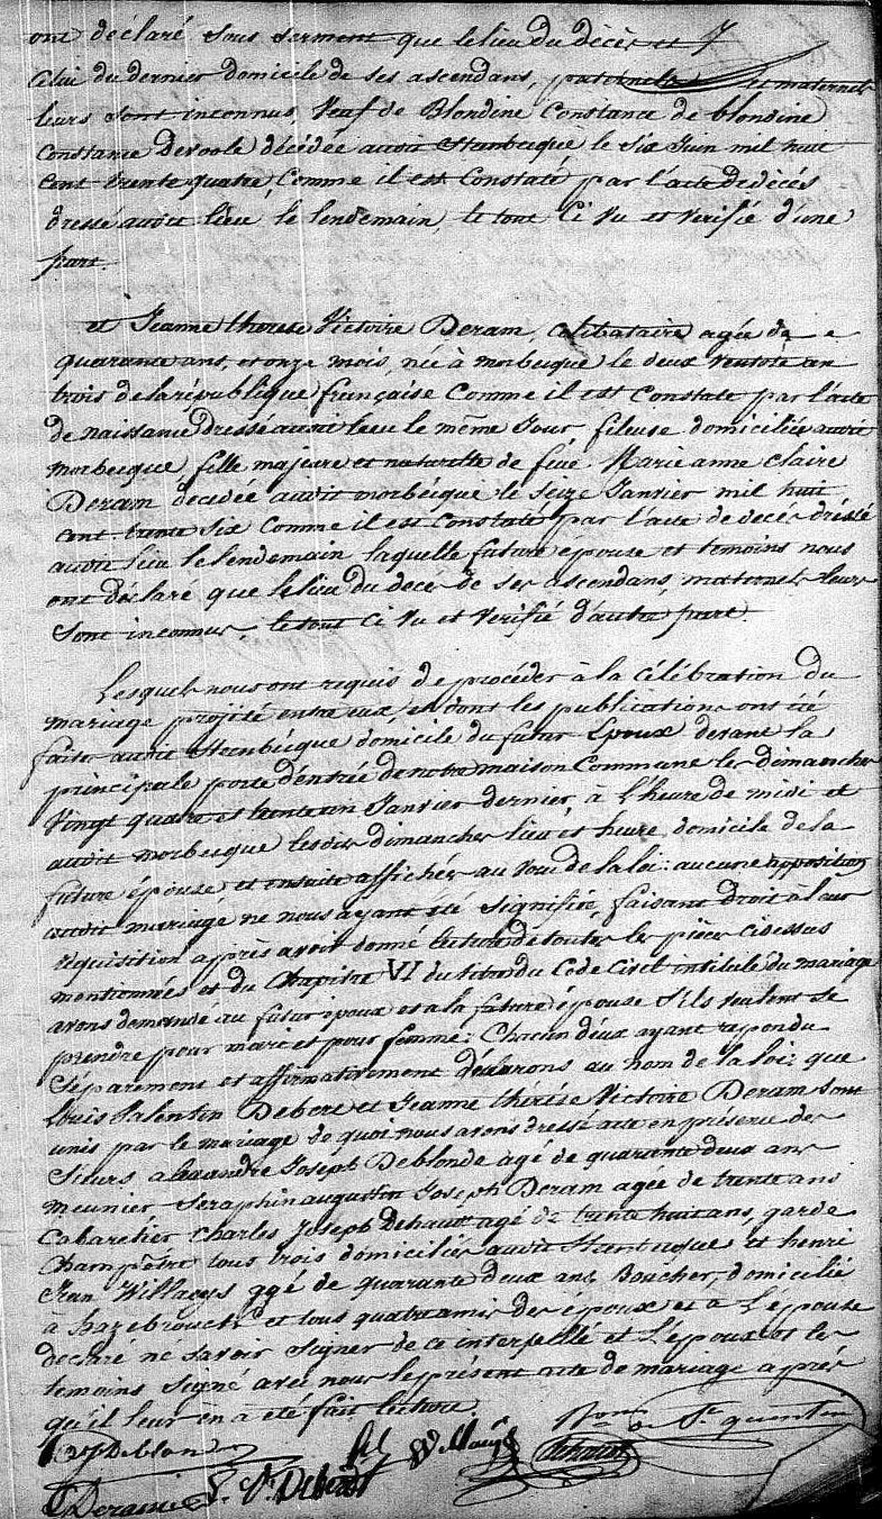 ont déclaré sous serment que le lieu du décès et
celui du dernier domicile de ses ascendans, paternels et maternels
leurs sont inconnus, Veuf de Blondine Constance de blondine
Constance Devoole décédée audit Steenbecque le Six Juin mil huit
cent trente quatre, Comme il est Constaté par l'acte de décès
dressé audit lieu le lendemain, le tout Ci Vu et Vérifié d'une
part.
et Jeanne thérese Victoire Deram, célibataire agée de
quarante ans, et onze mois, née à morbecque le deux Ventose an
trois de la république française Comme il est Constaté par l'acte
de naissance dressé audit lieu le même Jour, fileuse domiciliée audit
morbecque, fille majeure et naturelle de feue Marie anne Claire
Deram décédée audit morbecque le Seize Janvier mil huit
cent trente Six Comme il est Constaté par l'acte de décès dréssé
audit lieu le lendemain laquelle future épouse et temoins nous
ont déclaré que le lieu du decès de ses ascendans, maternels leurs
Sont inconnus, le tout Ci Vu et Verifié d'autre part.
Lesquels nous ont requis de procéder à la Célébration du
mariage projeté entre eux, et dont les publications ont été
faites audit Steenbecque domicile du futur Epoux devant la
principale porte d'entrée de notre maison Commune les dimanches
Vingt quatre et trente un Janvier dernier, à l'heure de midi et
audit morbecque lesdits dimanches lieu et heure, domicile de la
future épouse et ensuite affichés au Vœu de la loi : aucune opposition
audit mariage ne nous ayant été Signifiée, faisant droit à leur
requisition apprès avoir donné lecture de toutes les pièces cidessus
mentionnées et du Chapitre VI du titre du Code Civil intitulé du mariage
avons demandé au futur époux et a la future épouse S'ils veulent se
prendre pour mari et pour femme : Chacun d'eux ayant repondu
Séparement et affirmativement déclarons au nom de la loi : que
Louis Valentin Debert et Jeanne thérèse Victoire Deram Sont
unis par le mariage de quoi nous avons dressé acte en présence des
Sieurs alexandre Joséph Deblonde agé de quarante deux ans
meunier Seraphin augustin Joseph Deram agée de trente ans
Cabaretier Charles Joseph Dehaut agé de trente huit ans, garde
Champêtre tous trois domiciliés audit Steenbecque et henri
Jean Willaeys agé de quarante deux ans Boucher, domicilié
a hazebrouck et tous quatre amis des époux et a L'épouse
declaré ne Savoir Signer de ce interpellé et L'époux et les
temoins Signé avec nous le présent acte de mariage aprés
qu'il leur en a été fait lecture.
Deblonde Willaeys Dehaut St quentin
Deram L. V. Debert